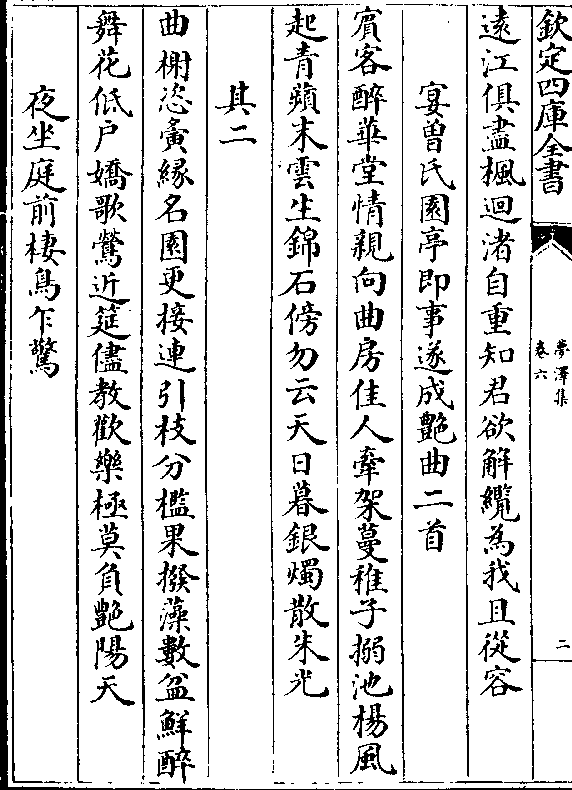 欽定四庫全書
夢澤集
卷六
二
遠江俱盡楓迴渚自重知君欲解纜為我且從容
宴曽氏園亭即事遂成艷曲二首
賔客醉華堂情親向曲房佳人牽架蔓稚子搦池楊風
起青蘋末雲生錦石傍勿云天日暮銀燭散朱光
其二
曲榭恣夤縁名園更接連引枝分檻果撥藻數盆鮮醉
舞花低户嬌歌鶯近筵儘教歡樂極莫負艷陽天
夜坐庭前棲鳥乍驚